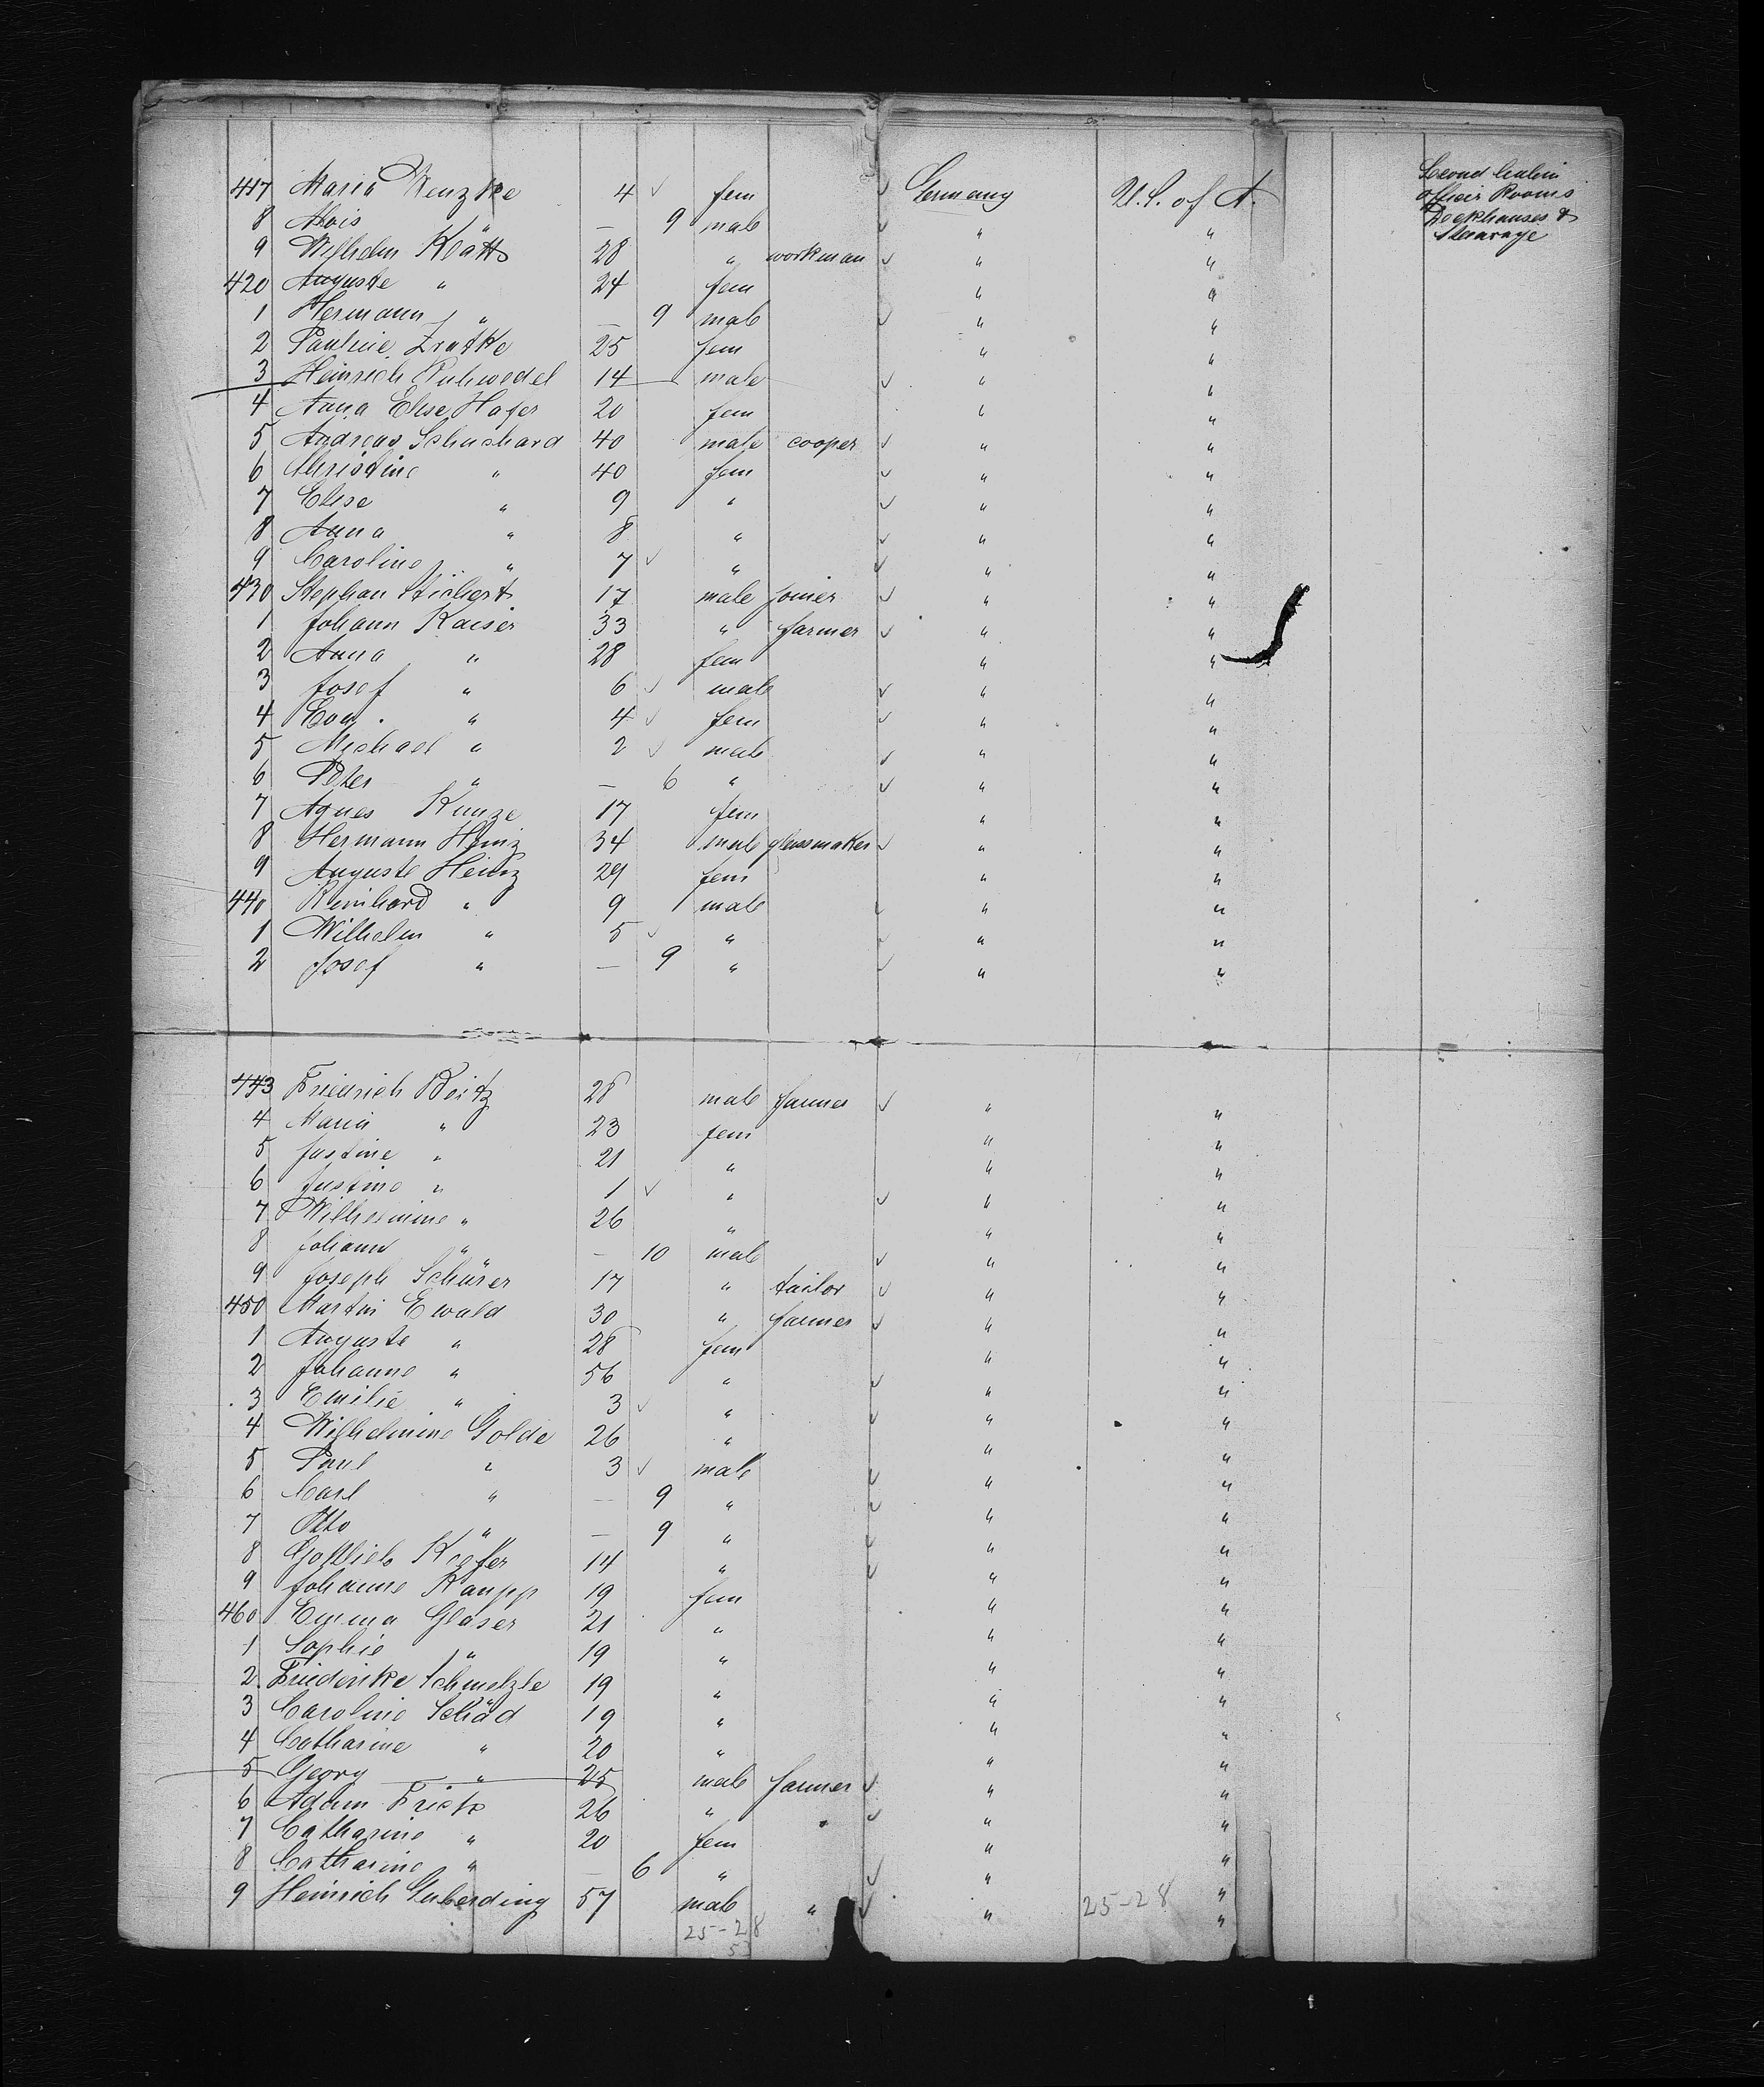 417 Maria Wenzke 4 ✓ fem ✓ Germany U.S. of A. Second Cabin
8 Alois " — 9 male ✓ " " officir Rooms
9 Wilhelm Klatt 28 " workman ✓ " " Deckhauses &
420 Auguste " 24 fem " " Stearage
1 Hermann " — 9 male ✓ " "
2 Pauline Zratke 25 fem " "
3 Heinrich Ruhwedel 14 male ✓ " "
4 Anna Elise Hafer 20 fem " "
5 Andreas Schuchard 40 male cooper ✓ " "
6 Christine " 40 fem ✓ " "
7 Elise " 9 " ✓ " "
8 Anna " 8 " ✓ " "
9 Caroline " 7 ✓ " ✓ " "
430 Stephan 17 male joiner ✓ " "
1 Johann Kaiser 33 " farmer ✓ " "
2 Anna " 28 fem " "
3 Josef " 6 ✓ male ✓ " "
4 Eva " 4 ✓ fem ✓ " "
5 Michael " 2 ✓ male ✓ " "
6 Peter " — 6 " ✓ " "
7 Agnes Kunze 17 fem " "
8 Hermann Heinz 34 male glassmaker ✓ " "
9 Auguste Heinz 29 fem " "
440 Reinhard " 9 male ✓ " "
1 Wilhelm " 5 ✓ " ✓ " "
2 Josef " — 9 " ✓ " "
443 Friedrich Beitz 28 male farmer ✓ " "
4 Maria " 23 fem " "
5 Justine " 21 " " "
6 Justine " 1 ✓ " ✓ " "
7 Wilhelmine " 26 " " "
8 Johann " — 10 male ✓ " "
9 Joseph Schürer 17 " tailor ✓ " "
450 Martin Ewald 30 " farmer ✓ " "
1 Auguste " 28 fem " "
2 Johanne " 56 " ✓ " "
3 Emilie " 3 ✓ " ✓ " "
4 Wilhelmine Golde 26 " " "
5 Paul " 3 ✓ male ✓ " "
6 Carl " — 9 " ✓ " "
7 Otto " — 9 " ✓ " "
8 Gottlieb Koefer 14 " ✓ " "
9 Johanne Raupp 19 fem " "
460 Emma Glaser 21 " " "
1 Sophie " 19 " " "
2 Friederike Schmelzle 19 " " "
3 Caroline Schäd 19 " " "
4 Catharine " 20 " " "
5 Georg " 25 male farmer ✓ " "
6 Adam 26 " " ✓ " "
7 Catharine " 20 fem " "
8 Catharine " — 6 " ✓ " "
9 Heinrich Guberding 57 male " ✓ " 25-28 "
25-28
53